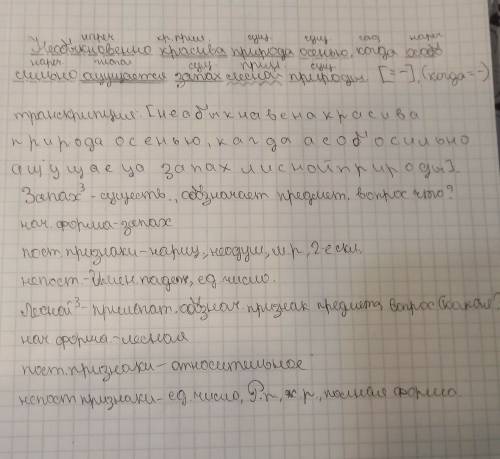 нареч кр. прил. сущ сущ соз нареч
Необыкновенно красива природа осенью, когда особо
нареч глагол сущ прил сущ
сильно ощущается запах лесной природы. [=-], (когда=-)
транскрипция: [н е о б ы к н а в е н а к р а с и в а
п р и р о д а о с е н ь ю, к а г д а а с о б о с и л ь н о
а щ у щ а е ц а з а п а х л и с н о й п р и р о д ы].
Запах³ - существ., обозначает предмет, вопрос что?
нач. форма - запах
пост. признаки - нариц, неодуш, м.р, 2-е скл.
непост - Имен. падеж, ед. число.
Лесной³ - прилагат. обознач. признак предмета, вопрос (какой?
нач. форма - лесная
пост. признаки - относительное
непост признаки - ед. число, Р.п, ж.р, полная форма.